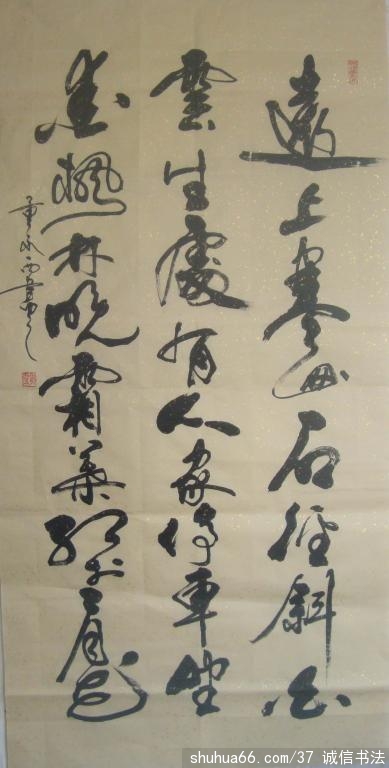 遠上寒山石徑斜白
雲生處有人家停車坐
愛楓林晚霜葉紅於二月花
shuhua66.com/37 诚信书法